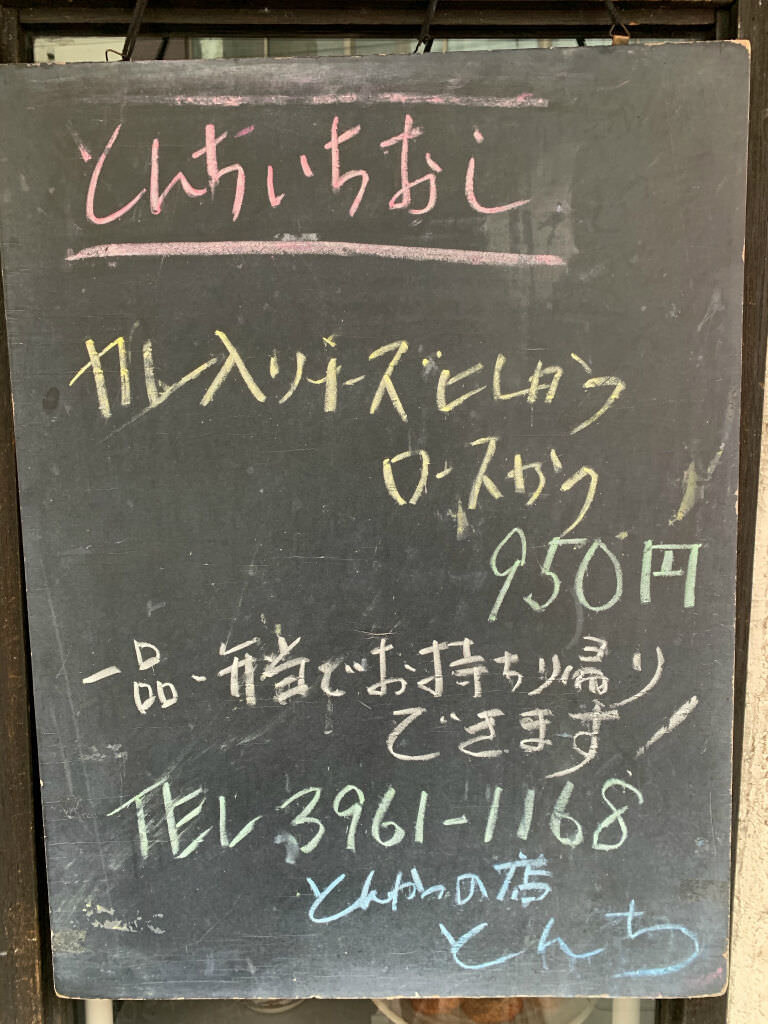 とんちいちおし
カレー入りチーズヒレかつ
ロースかつ
950円
一品・弁当でお持ち帰り
できます!
TEL 3961-1168
とんかつの店
とんち